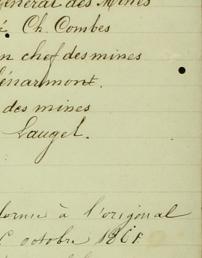 Général des Mines
Ch. Combes
en chef des mines
Sénarmont.
des mines
Laugel.
forme à l'original
octobre